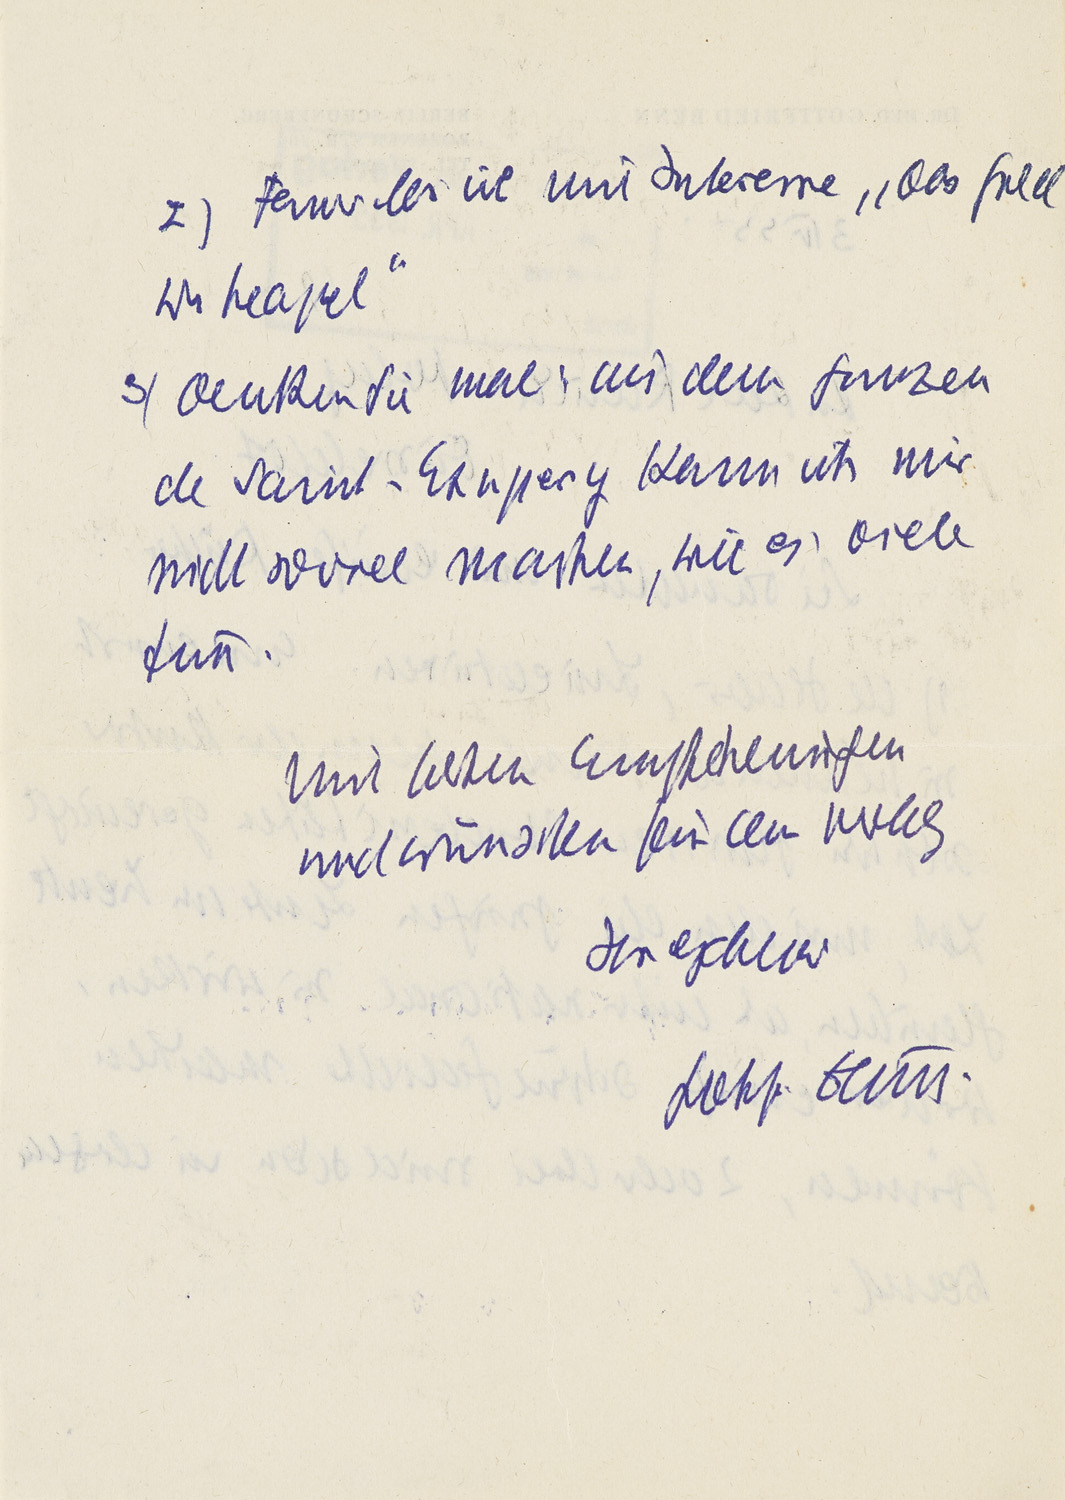 2) Ferner las ich mit Interesse „Das Gold
von Neapel“
3) Denken Sie mal: aus dem ganzen
de Saint-Exupery kann ich mir
nicht soviel machen, wie es viele
tun.
Mit besten Empfehlungen
und Wünschen für den Verlag
Ihr ergebener
Gottfr. Benn.